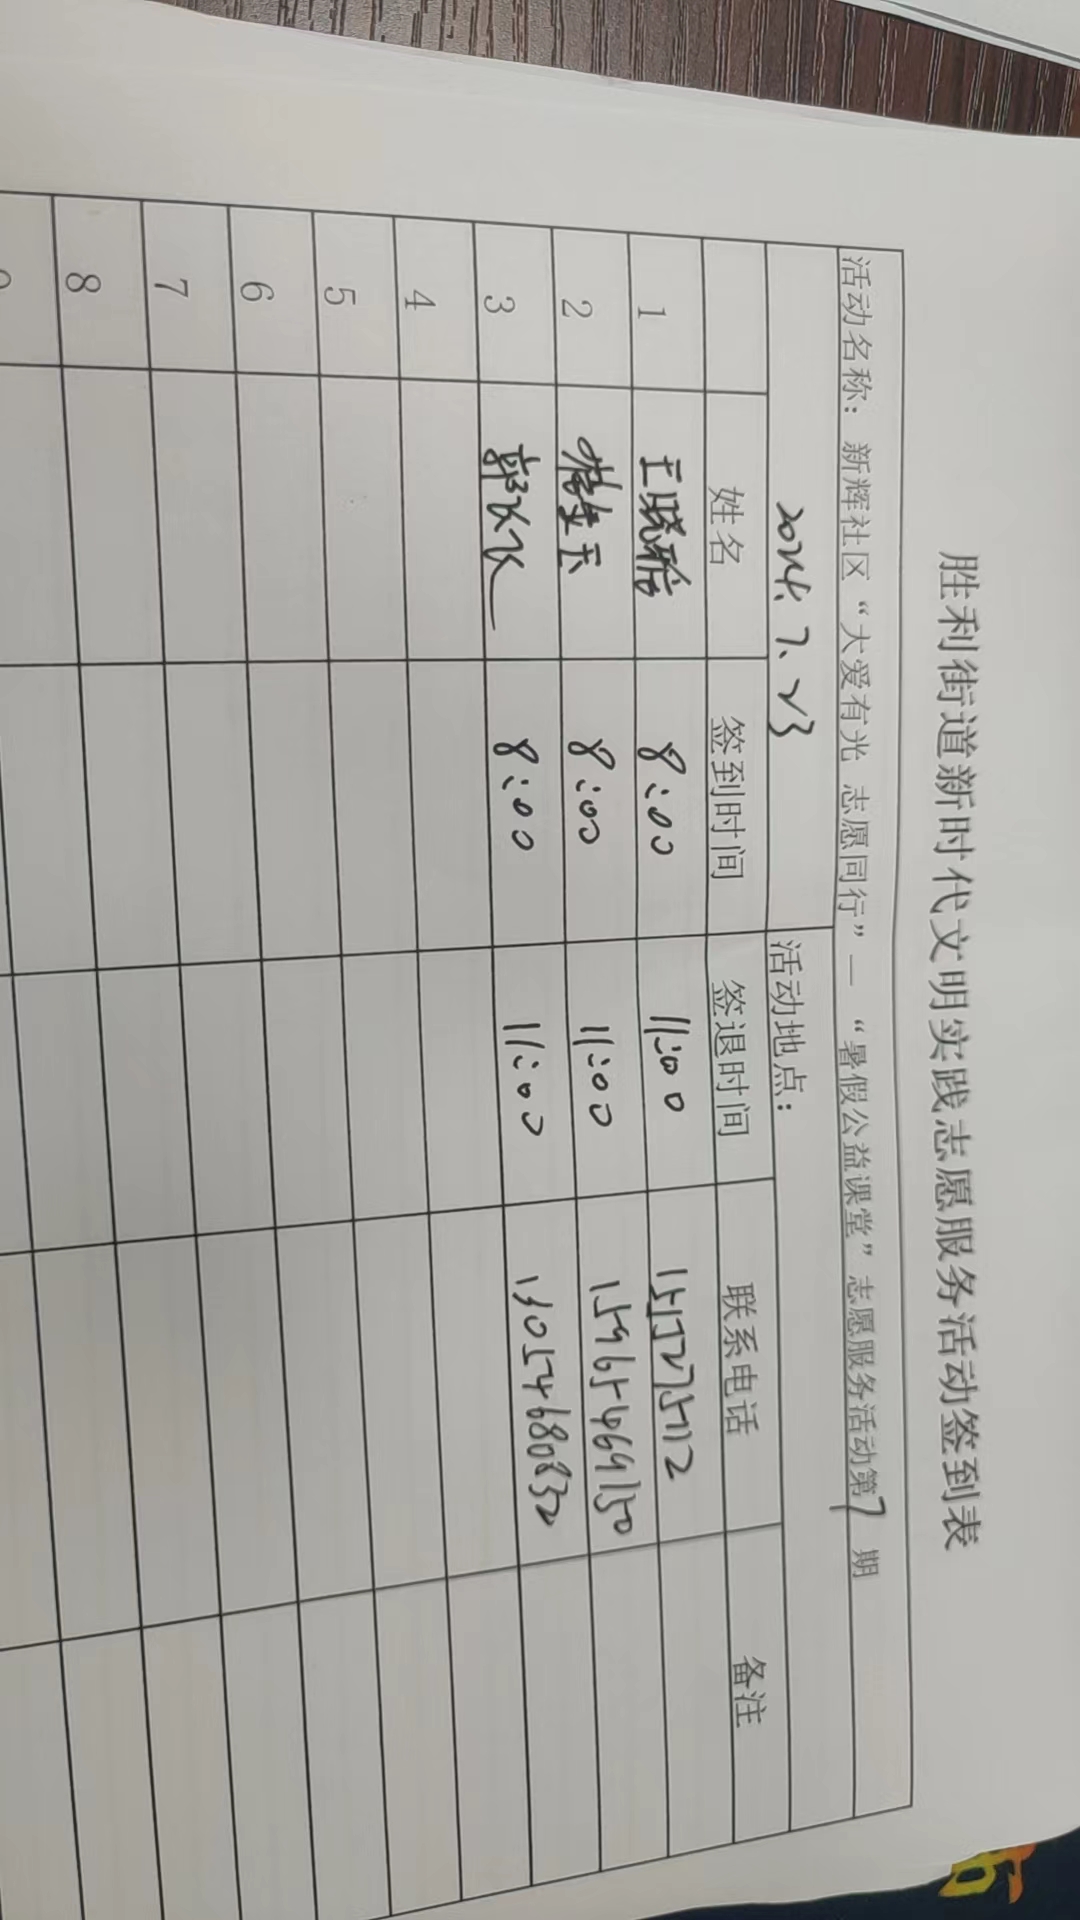 胜利街道新时代文明实践志愿服务活动签到表
活动名称：新辉社区“大爱有光 志愿同行”—“暑假公益课堂”志愿服务活动第7期
2024.7.23 活动地点：
姓名 签到时间 签退时间 联系电话 备注
1 王晓晗 8:00 11:00
2 8:00 11:00 15965469150
3 郭 8:00 11:00 13054680832
4
5
6
7
8